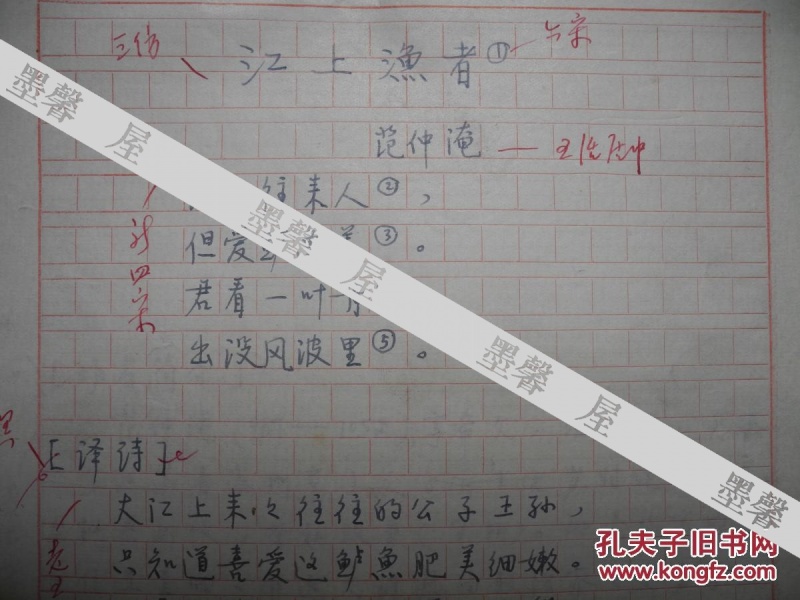 三仿 江上漁者① 六宋
范仲淹 —
往来人②，
但爱 ③。
新四宋
君看一叶
出没风波里⑤。
[译诗]
大江上来来往往的公子王孙，
只知道喜爱这鲈魚肥美细嫩。
老五
墨馨屋
墨馨屋
墨馨屋
墨馨屋
墨馨
孔夫子旧书网
www.kongfz.com